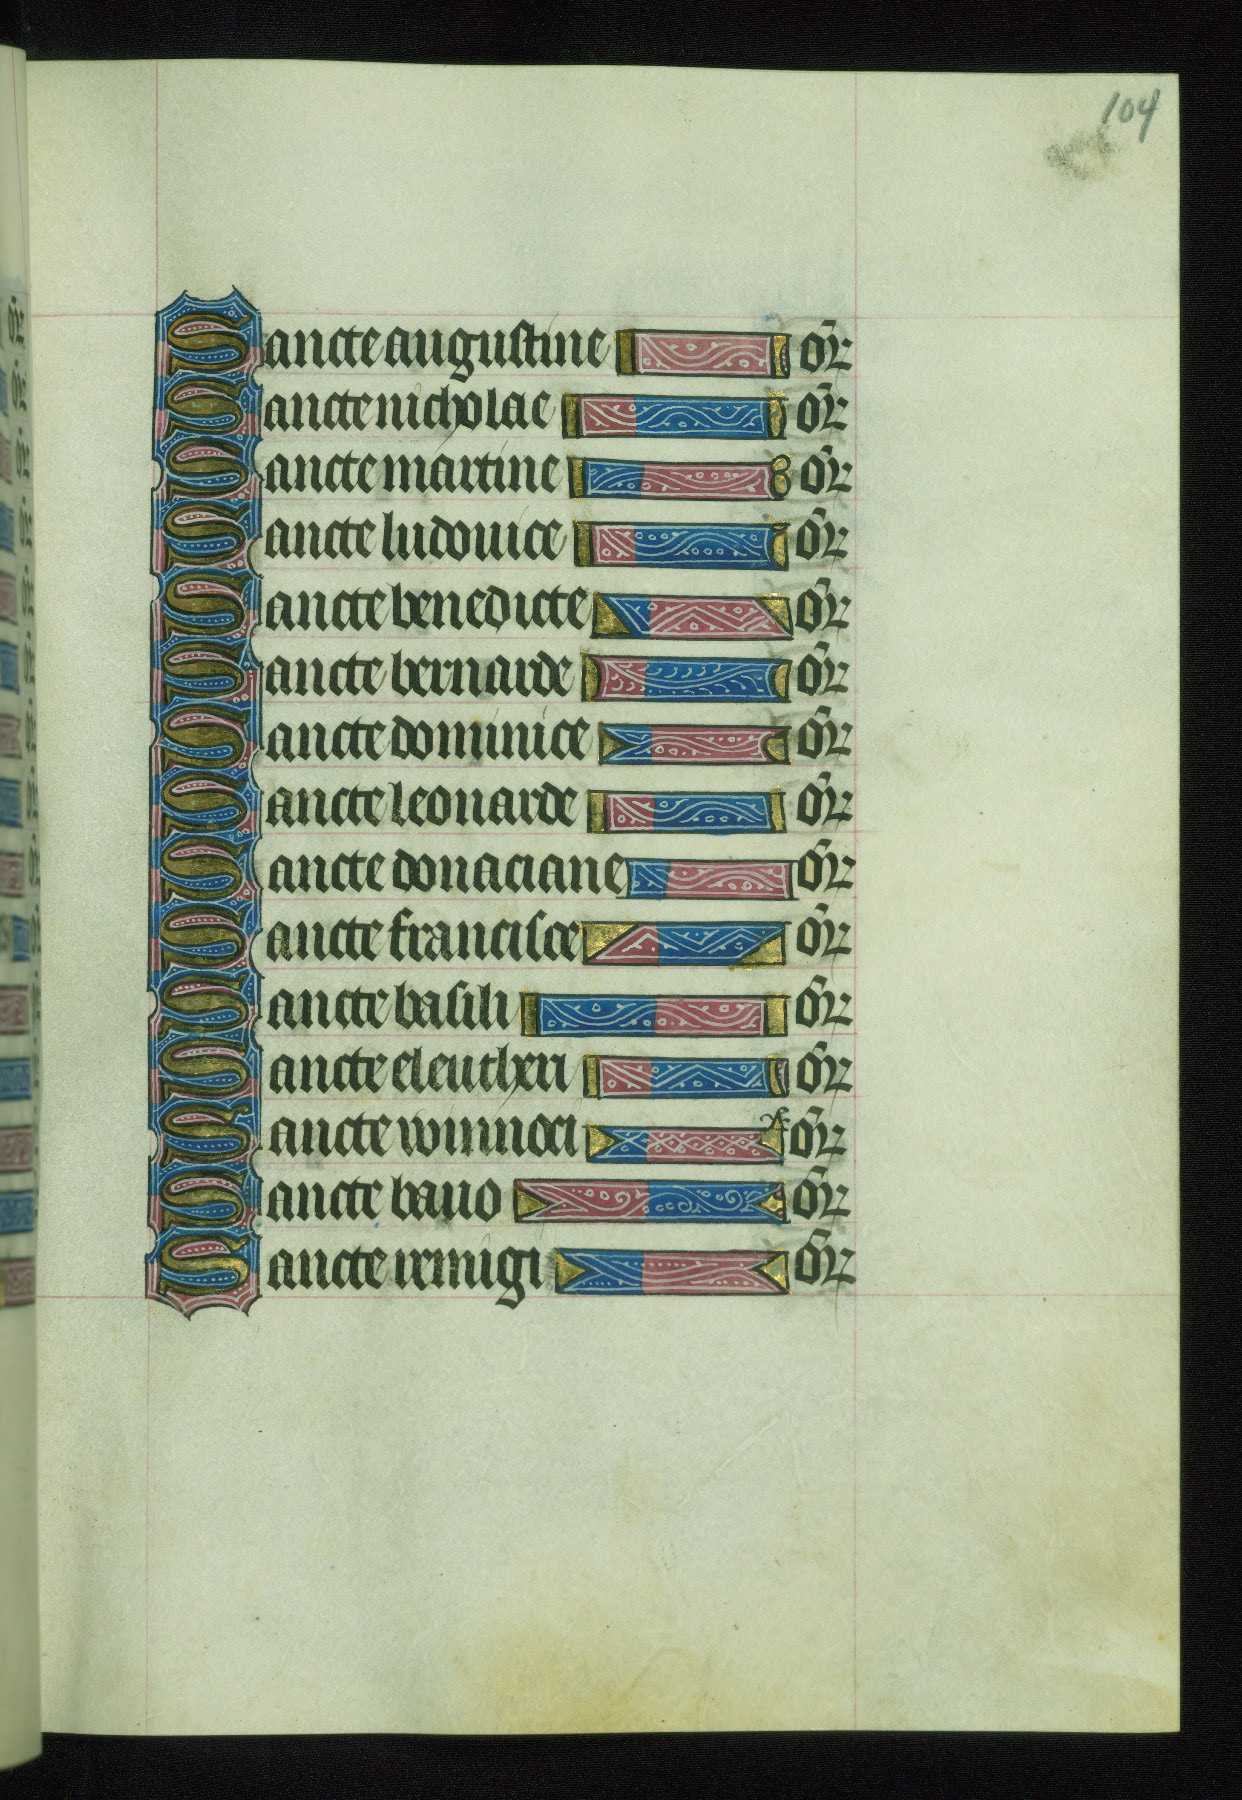 104
Sancte augustine or
Sancte nicholae or
Sancte martine or
Sancte ludovice or
Sancte benedicte or
Sancte bernarde or
Sancte dominice or
Sancte leonarde or
Sancte donaciane or
Sancte francisce or
Sancte basili or
Sancte eleutheri or
Sancte winnoci or
Sancte bavo or
Sancte remigi or